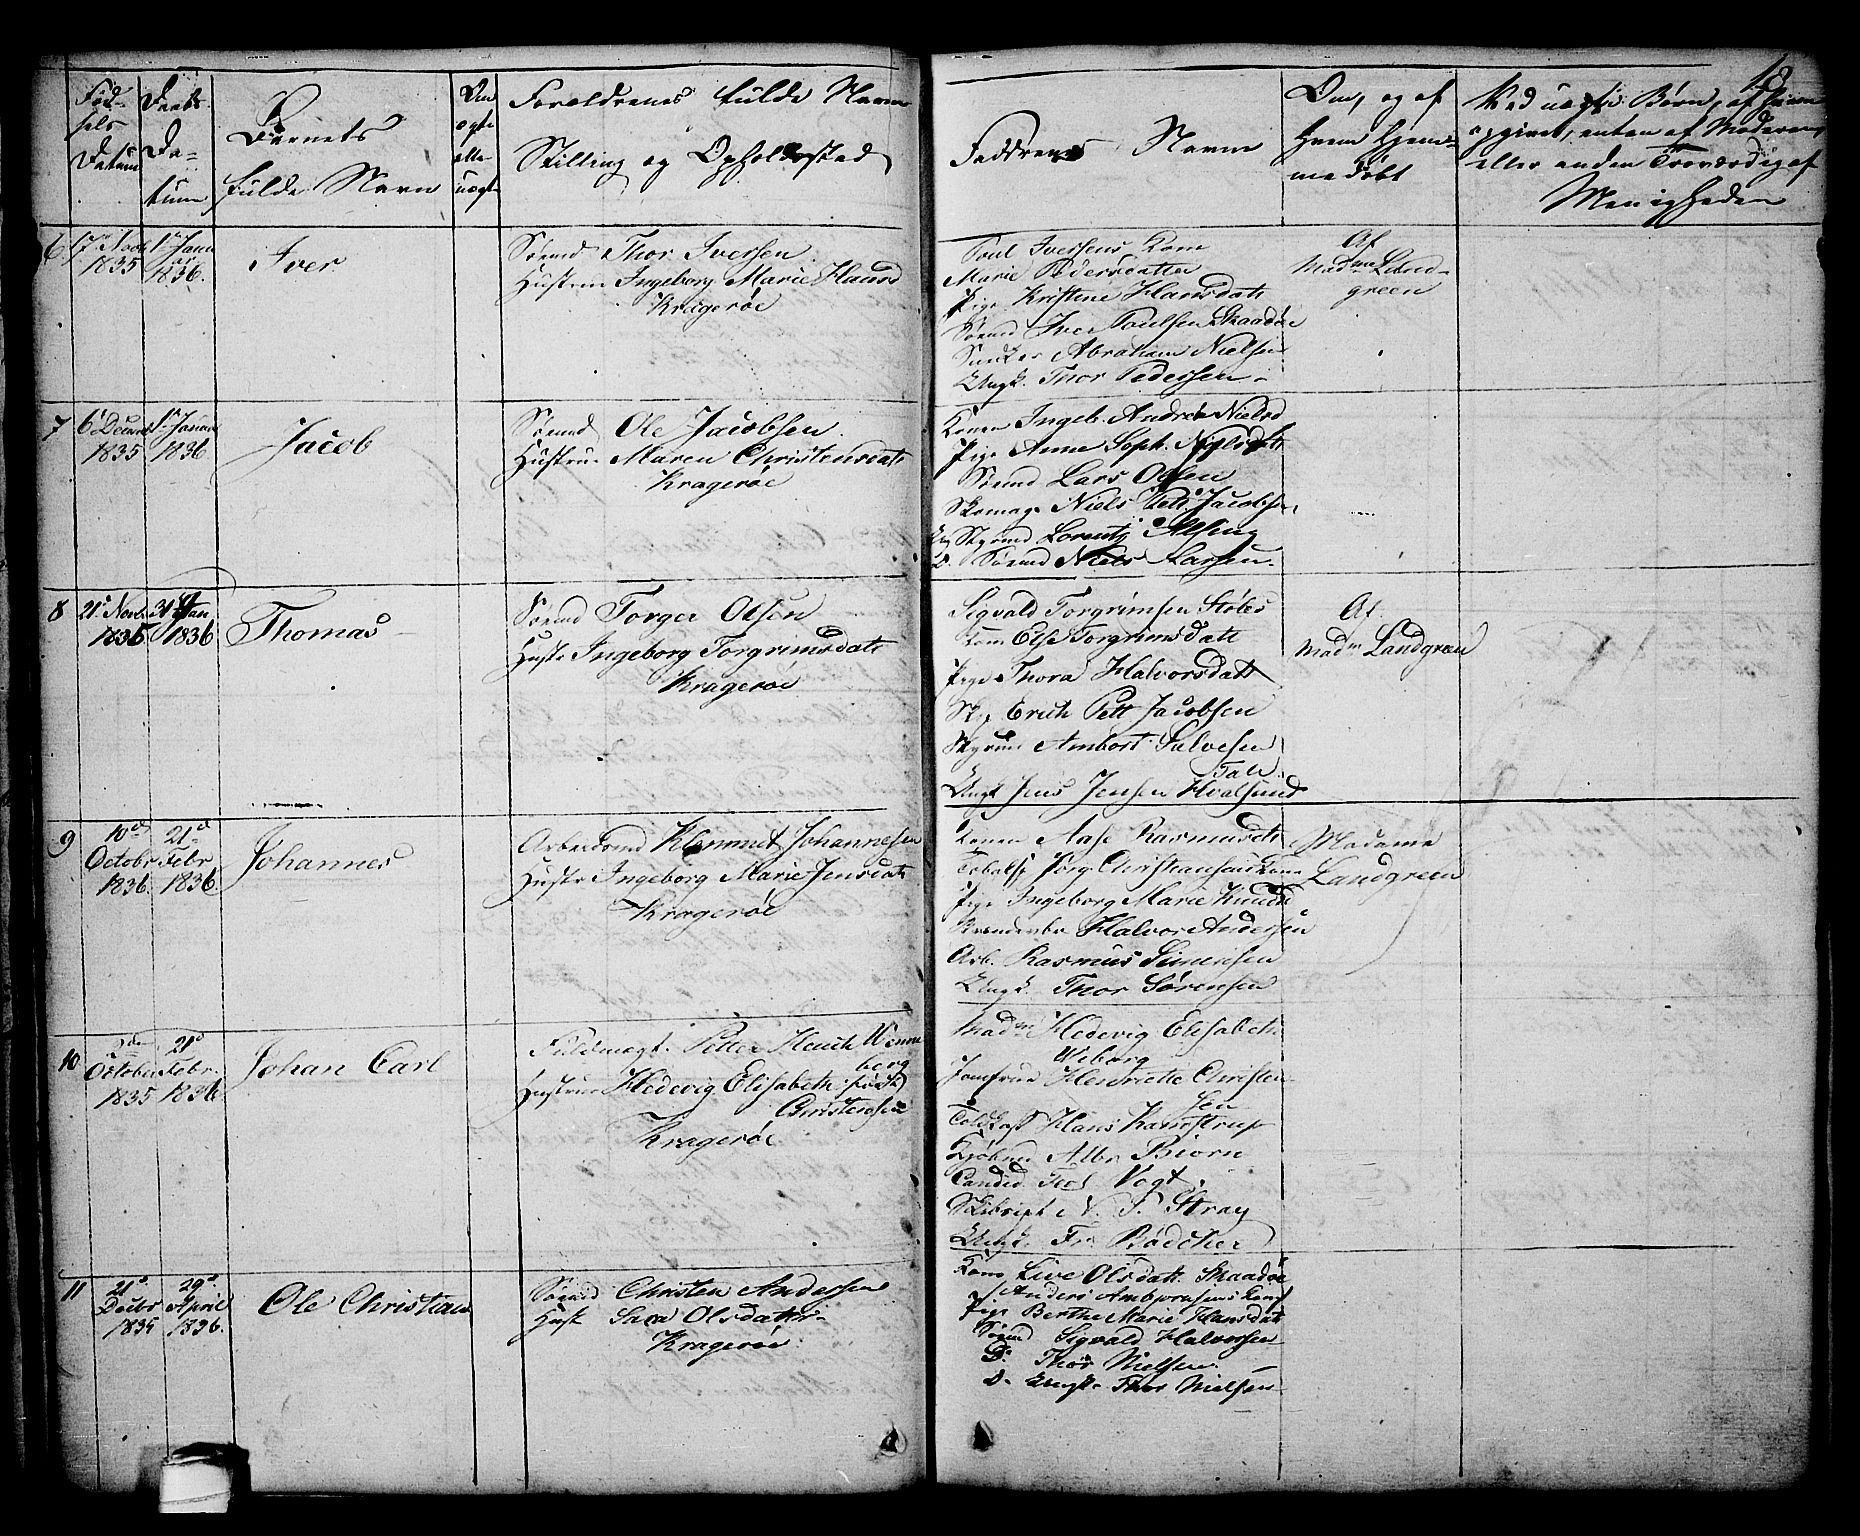 18
Fød-
sels
Datum
Daabs
Da-
tum
Barnets
fulde Navn
Om
ægte
eller
uægte
Forældrenes fulde Navne
Stilling og Opholdssted
Faddrenes Navne
Om, og af
hvem hjem-
medøbt
Ved uægte Børn, af hvem
opgivet, enten af Moderen,
eller anden Troværdig af
Menigheden
6
17 Novb
1835
1 Janu
ar
1836.
Iver
Sømd Thor Iversen.
Hustrue Ingeborg Marie Hansd
Kragerøe
Poul Iversens Kone
Marie Pedersdatter
Pige Kristine Hansdatt
Sømd Iver Poulsen Skaadøe
Snedker Abraham Nielsen
Ungk. Thor Pedersen
Af
Madme Land-
green
7
6 Decemb
1835
1 Januar
1836
Jacob
Sømd Ole Jacobsen.
Hustrue Maren Christensdatt
Kragerøe
Konen Ingeb. Andrea Nielsd
Pige Anne Soph. Nielsdatt
Sømd Lars Olsen
Skomag. Niels Pett Jacobsen
Skomd Lorentz Alsing
D. Sømd Niels Larsen.
8
21 Novb
1835
31 Jan
1836
Thomas
Sømd Torger Olsen
Hustr Ingeborg Torgrimsdatt
Kragerøe
Sigvald Torgrimsen Støles
Kone Else Torgrimsdatt
Pige Thora Halvorsdatt
Sk. Erich Pett Jacobsen
Ambort Salvesen
Tale
Ungk Jens Jensen Hvalsund
Af
Madm Landgreen
9
10d
Octobr
1836.
21d
Febr
1836.
Johannes
Arbeidsmd Klemmet Johannesen
Hustr Ingeborg Marie Jensdatt
Kragerøe
Konen Aase Rasmusdt
Jørg Christiansens Kone
Pige Ingeborg Marie Knudsd
Halvor Andersen
Arb. Rasmus Simensen
Ungk. Thor Sørensen
Madame
Landgreen
10
October
1835
21d
Febr.
1836
Johan Carl
Fuldmægt. Petter Henrich Wenne
berg
Hustrue Hedevig Elisabeth født
Christensen
Kragerøe
Madm Hedevig Elisabeth
Wiborg
Jomfrue Henriette Christen-
sen
Toldkass Hans Kamstrup
Kjøbmd Albr Biørn
Candid. Vogt.
N. S. Stray
Ungk. Fr. Bödcker
11
21d
Decbr
1835
29d
April
1836.
Ole Christian
Sømd Christen Andersen
Hust Sara Olsdatter
Kragerøe
Kone Live Olsdatt. Skaadøe
Anders Ambjørnsens Kone
Pige Berthe Marie Hansdatt
Sømd Sigvald Halvorsen
D. Thor Nielsen.
D. Ungk. Thor Nielsen